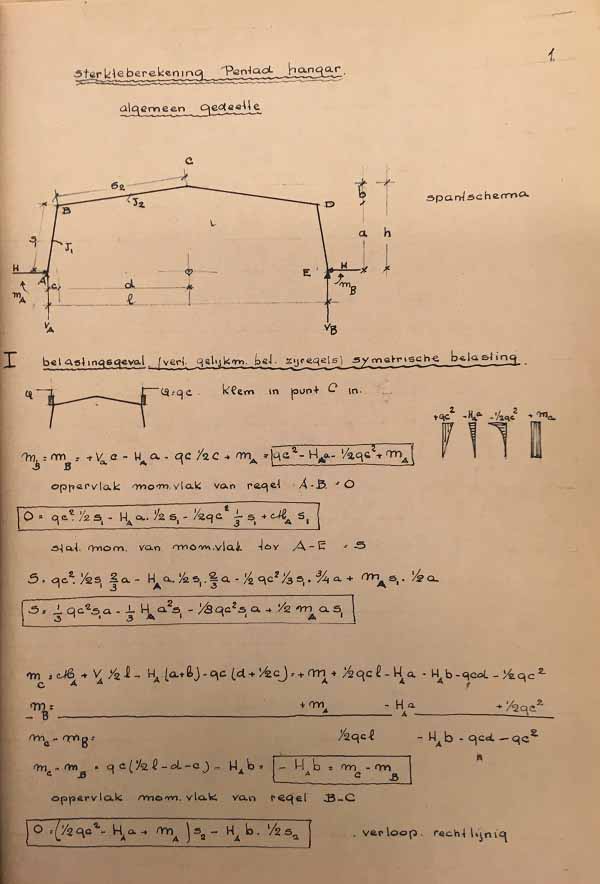 1.
sterkteberekening Pentad hangar.
algemeen gedeelte
C
S2
B J2 D b
spantschema
S1 J1 a h
H A E H
mA c d mB
l
VA VB
I belastingsgeval (vert. gelijkm. bel. zijregels) symetrische belasting.
Q Q=qc. Klem in punt C in.
+qc² -HAa -½qc² +mA
mB = mB = +VAc - HAa - qc ½c + mA = qc² - HAa - ½qc² + mA
oppervlak mom.vlak van regel A-B = O
O = qc². ½s1 - HAa. ½s1 - ½qc² ⅓ s1 + mA s1
stat. mom. van mom.vlak tov A-E = S
S = qc². ½s1 ⅔a - HAa. ½s1. ⅔a - ½qc² ⅓s1. ¾a + mA s1. ½a
S = ⅓ qc²s1a - ⅓ HAa²s1 - ⅛qc²s1a + ½ mA a s1
mC = mA + VA ½l - HA(a+b) - qc(d+½c) = + mA + ½qcl - HAa - HAb - qcd - ½qc²
- mB = + mA - HAa + ½qc²
mC - mB = ½qcl - HAb - qcd - qc²
mC - mB = qc(½l-d-c) - HAb = - HAb = mC - mB
oppervlak mom.vlak van regel B-C
O = (½qc² - HAa + mA) s2 - HAb. ½s2 . verloop. rechtlijnig